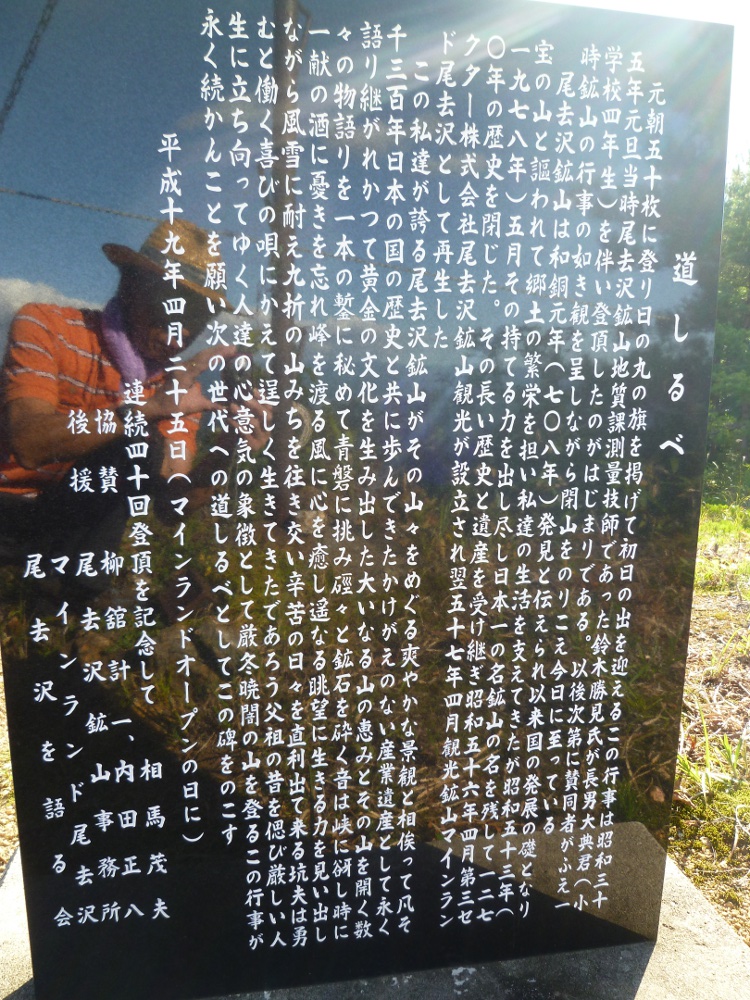 道しるべ
元朝五十枚に登り日の丸の旗を掲げて初日の出を迎えるこの行事は昭和三十
五年元旦当時尾去沢鉱山地質課測量技師であった鈴木勝見氏が長男大典君（小
学校四年生）を伴い登頂したのがはじまりである。以後次第に賛同者がふえ一
時鉱山の行事の如き観を呈しながら閉山をのりこえ今日に至っている
尾去沢鉱山は和銅元年（七〇八年）発見と伝えられ以来国の発展の礎となり
宝の山と謳われて郷土の繁栄を担い私達の生活を支えてきたが昭和五十三年（
一九七八年）五月その持てる力を出し尽し日本一の名鉱山の名を残して一二七
〇年の歴史を閉じた。その長い歴史と遺産を受け継ぎ昭和五十六年四月第三セ
クター株式会社尾去沢鉱山観光が設立され翌五十七年四月観光鉱山マインラン
ド尾去沢として再生した
この私達が誇る尾去沢鉱山がその山々をめぐる爽やかな景観と相俟って凡そ
千三百年日本の国の歴史と共に歩んできたかけがえのない産業遺産として永く
語り継がれかつて黄金の文化を生み出した大いなる山の恵みとその山を開く数
々の物語りを一本の鏨に秘めて青磐に挑み硜々と鉱石を砕く音は峡に谺し時に
一献の酒に憂きを忘れ峰を渡る風に心を癒し遥なる眺望に生きる力を見い出し
ながら風雪に耐え九折の山みちを往き交い辛苦の日々を直利出て来る坑夫は勇
むと働く喜びの唄にかえて逞しく生きてきたであろう父祖の昔を偲び厳しい人
生に立ち向ってゆく人達の心意気の象徴として厳冬暁闇の山を登るこの行事が
永く続かんことを願い次の世代への道しるべとしてこの碑をのこす
平成十九年四月二十五日（マインランドオープンの日に）
連続四十回登頂を記念して 相馬茂夫
協賛 柳舘計一、内田正八
後援 尾去沢鉱山事務所
マインランド尾去沢
尾去沢を語る会